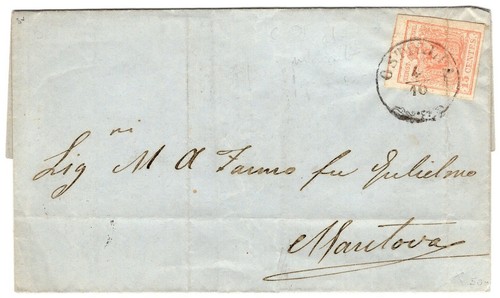 15 CENTES
OSTIGLIA
4
10
Sig.ri M A Fanno fu Gulielmo
Mantova